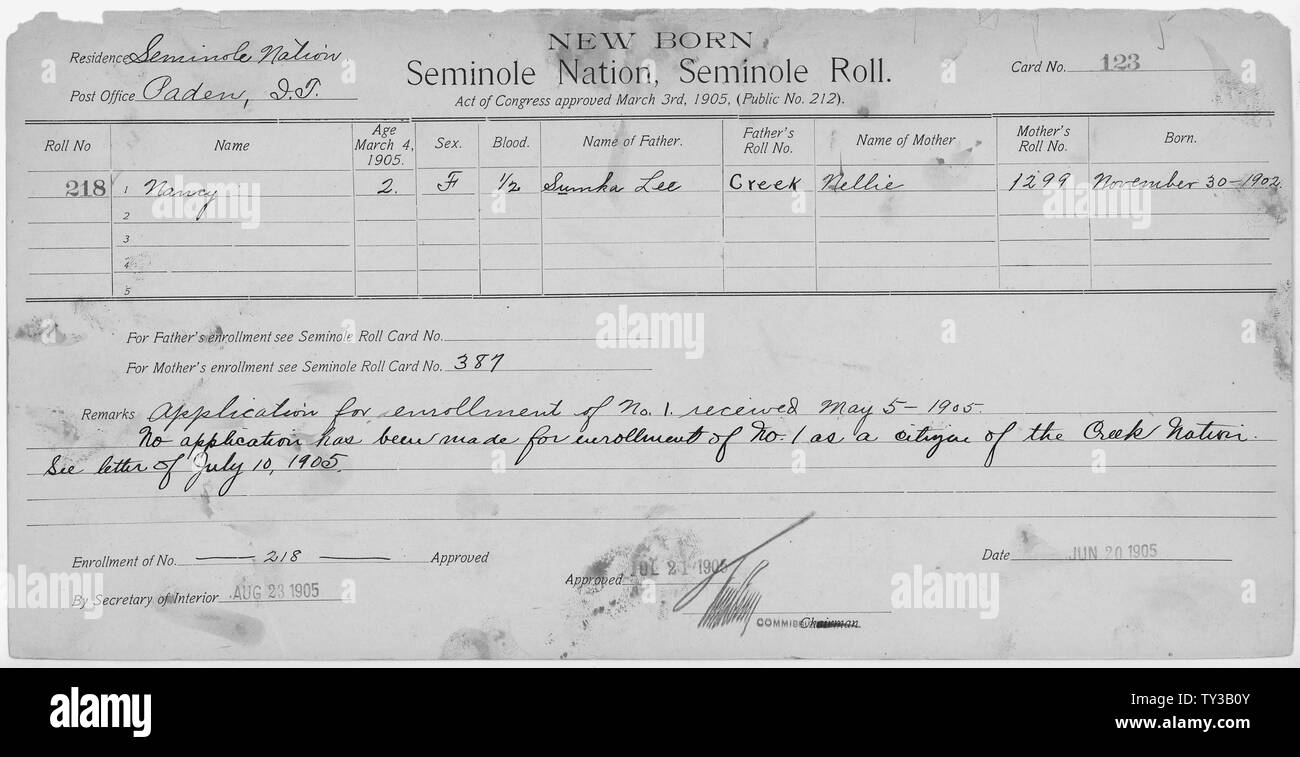 NEW BORN
Residence Seminole Nation
Seminole Nation, Seminole Roll.
Card No. 123
5
Post Office Paden, I.T.
Act of Congress approved March 3rd, 1905, (Public No. 212).
Roll No Name Age March 4, 1905. Sex. Blood. Name of Father. Father's Roll No. Name of Mother Mother's Roll No. Born.
218 1 Nancy 2. F 1/2 Sumka Lee Creek Nellie 1299 November 30-1902.
2
3
4
5
For Father's enrollment see Seminole Roll Card No.
For Mother's enrollment see Seminole Roll Card No. 387
Remarks Application for enrollment of No. 1. received May 5-1905.
No application has been made for enrollment of No. 1 as a citizen of the Creek Nation.
See letter of July 10, 1905.
Enrollment of No. 218 Approved
Date JUN 20 1905
Approved JUL 21 1905
By Secretary of Interior AUG 23 1905
Chairman.
a
alamy
alamy
a alamy
a
a alamy
alamy
a
alamy
Image ID: TY3B0Y
www.alamy.com